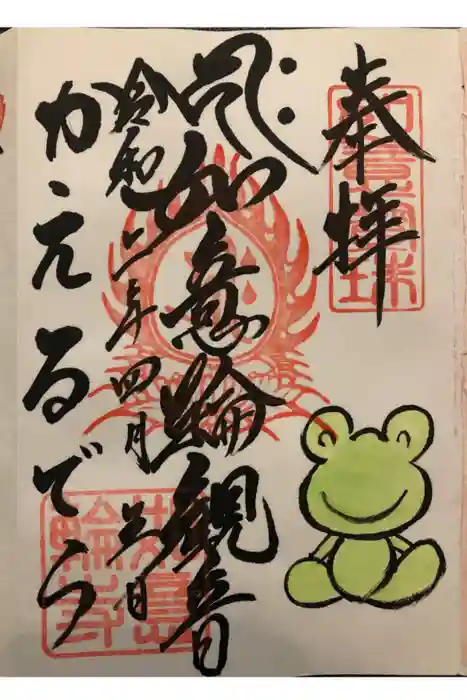 奉拝
如意輪観音
令和二年四月
かえるでら
如意
輪寺